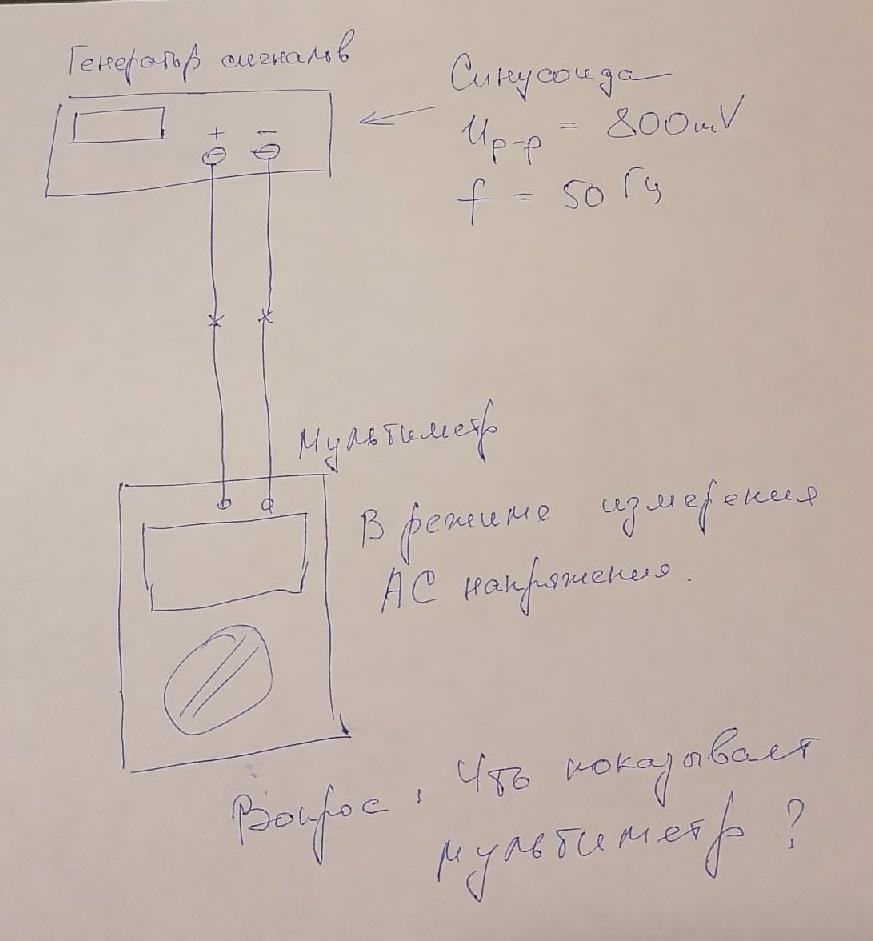 Генератор сигналов
Синусоида
Up-p = 800mV
f = 50 Гц
+ −
Мультиметр
В режиме измерения
AC напряжения.
Вопрос: Что показывает
мультиметр?